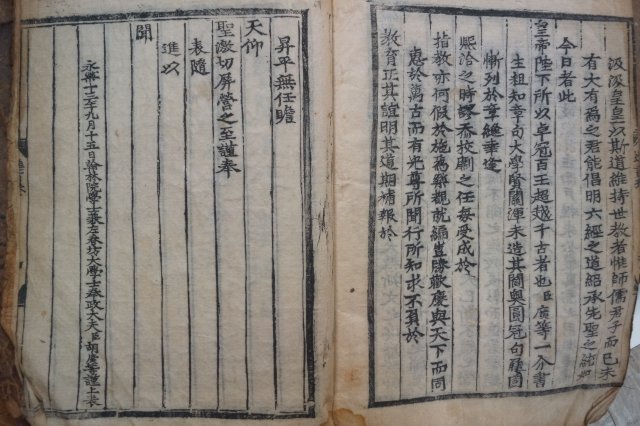 汲汲皇皇以斯道維持世教者惟師儒君子而已未
有大有為之君能倡明六經之道紹承先聖之統如
今日者此
皇帝陛下所以卓冠百王超越千古者也臣廣等一介書
生粗知章句大學賢關渾未造其閫奧圓冠句屨固
慚列於章縫幸逢
熙洽之時謬忝校讎之任每受成於
指教亦何假於施為樂觀就編豈勝歡慶與天下而同
惠於萬古而有光尊所聞行所知求不負於
教育正其誼明其道期補報於
昇平無任瞻
天仰
聖激切屏營之至謹奉
表隨
進以
聞
永樂十三年九月十五日翰林院學士兼左春坊大學士奉政大夫臣胡廣等謹上表